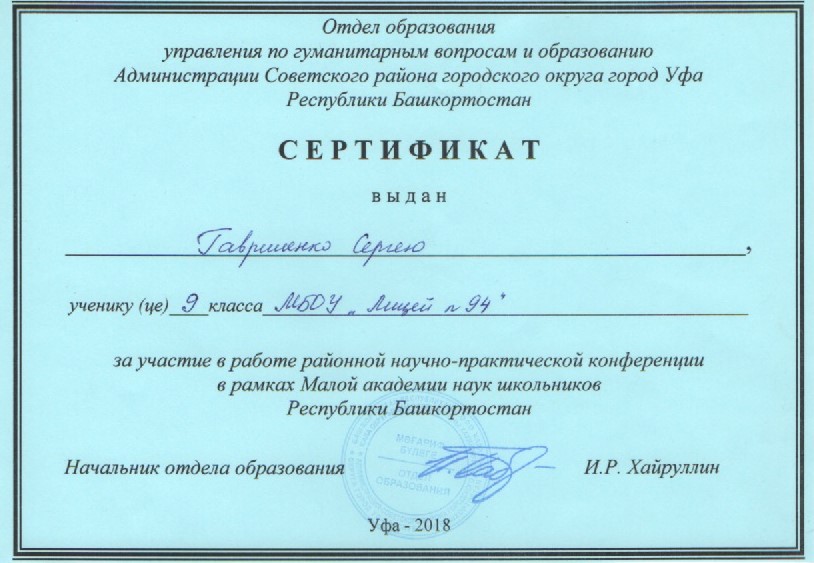 Отдел образования
управления по гуманитарным вопросам и образованию
Администрации Советского района городского округа город Уфа
Республики Башкортостан
СЕРТИФИКАТ
выдан
Гавриленко Сергею,
ученику (це) 9 класса МБОУ „Лицей №94"
за участие в работе районной научно-практической конференции
в рамках Малой академии наук школьников
Республики Башкортостан
МӘГАРИФ
БҮЛЕГЕ
ОТДЕЛ
ОБРАЗОВАНИЯ
Начальник отдела образования И.Р. Хайруллин
Уфа - 2018